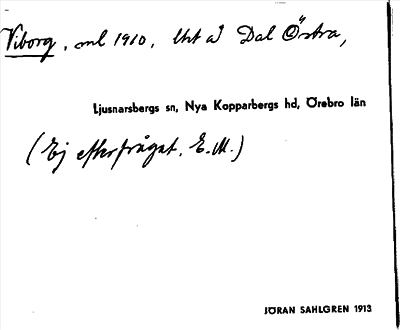 Viborg, enl 1910, lht å Dal Östra,
Ljusnarsbergs sn, Nya Kopparbergs hd, Örebro län
(Ej efterfrågat. E.M.)
JÖRAN SAHLGREN 1913